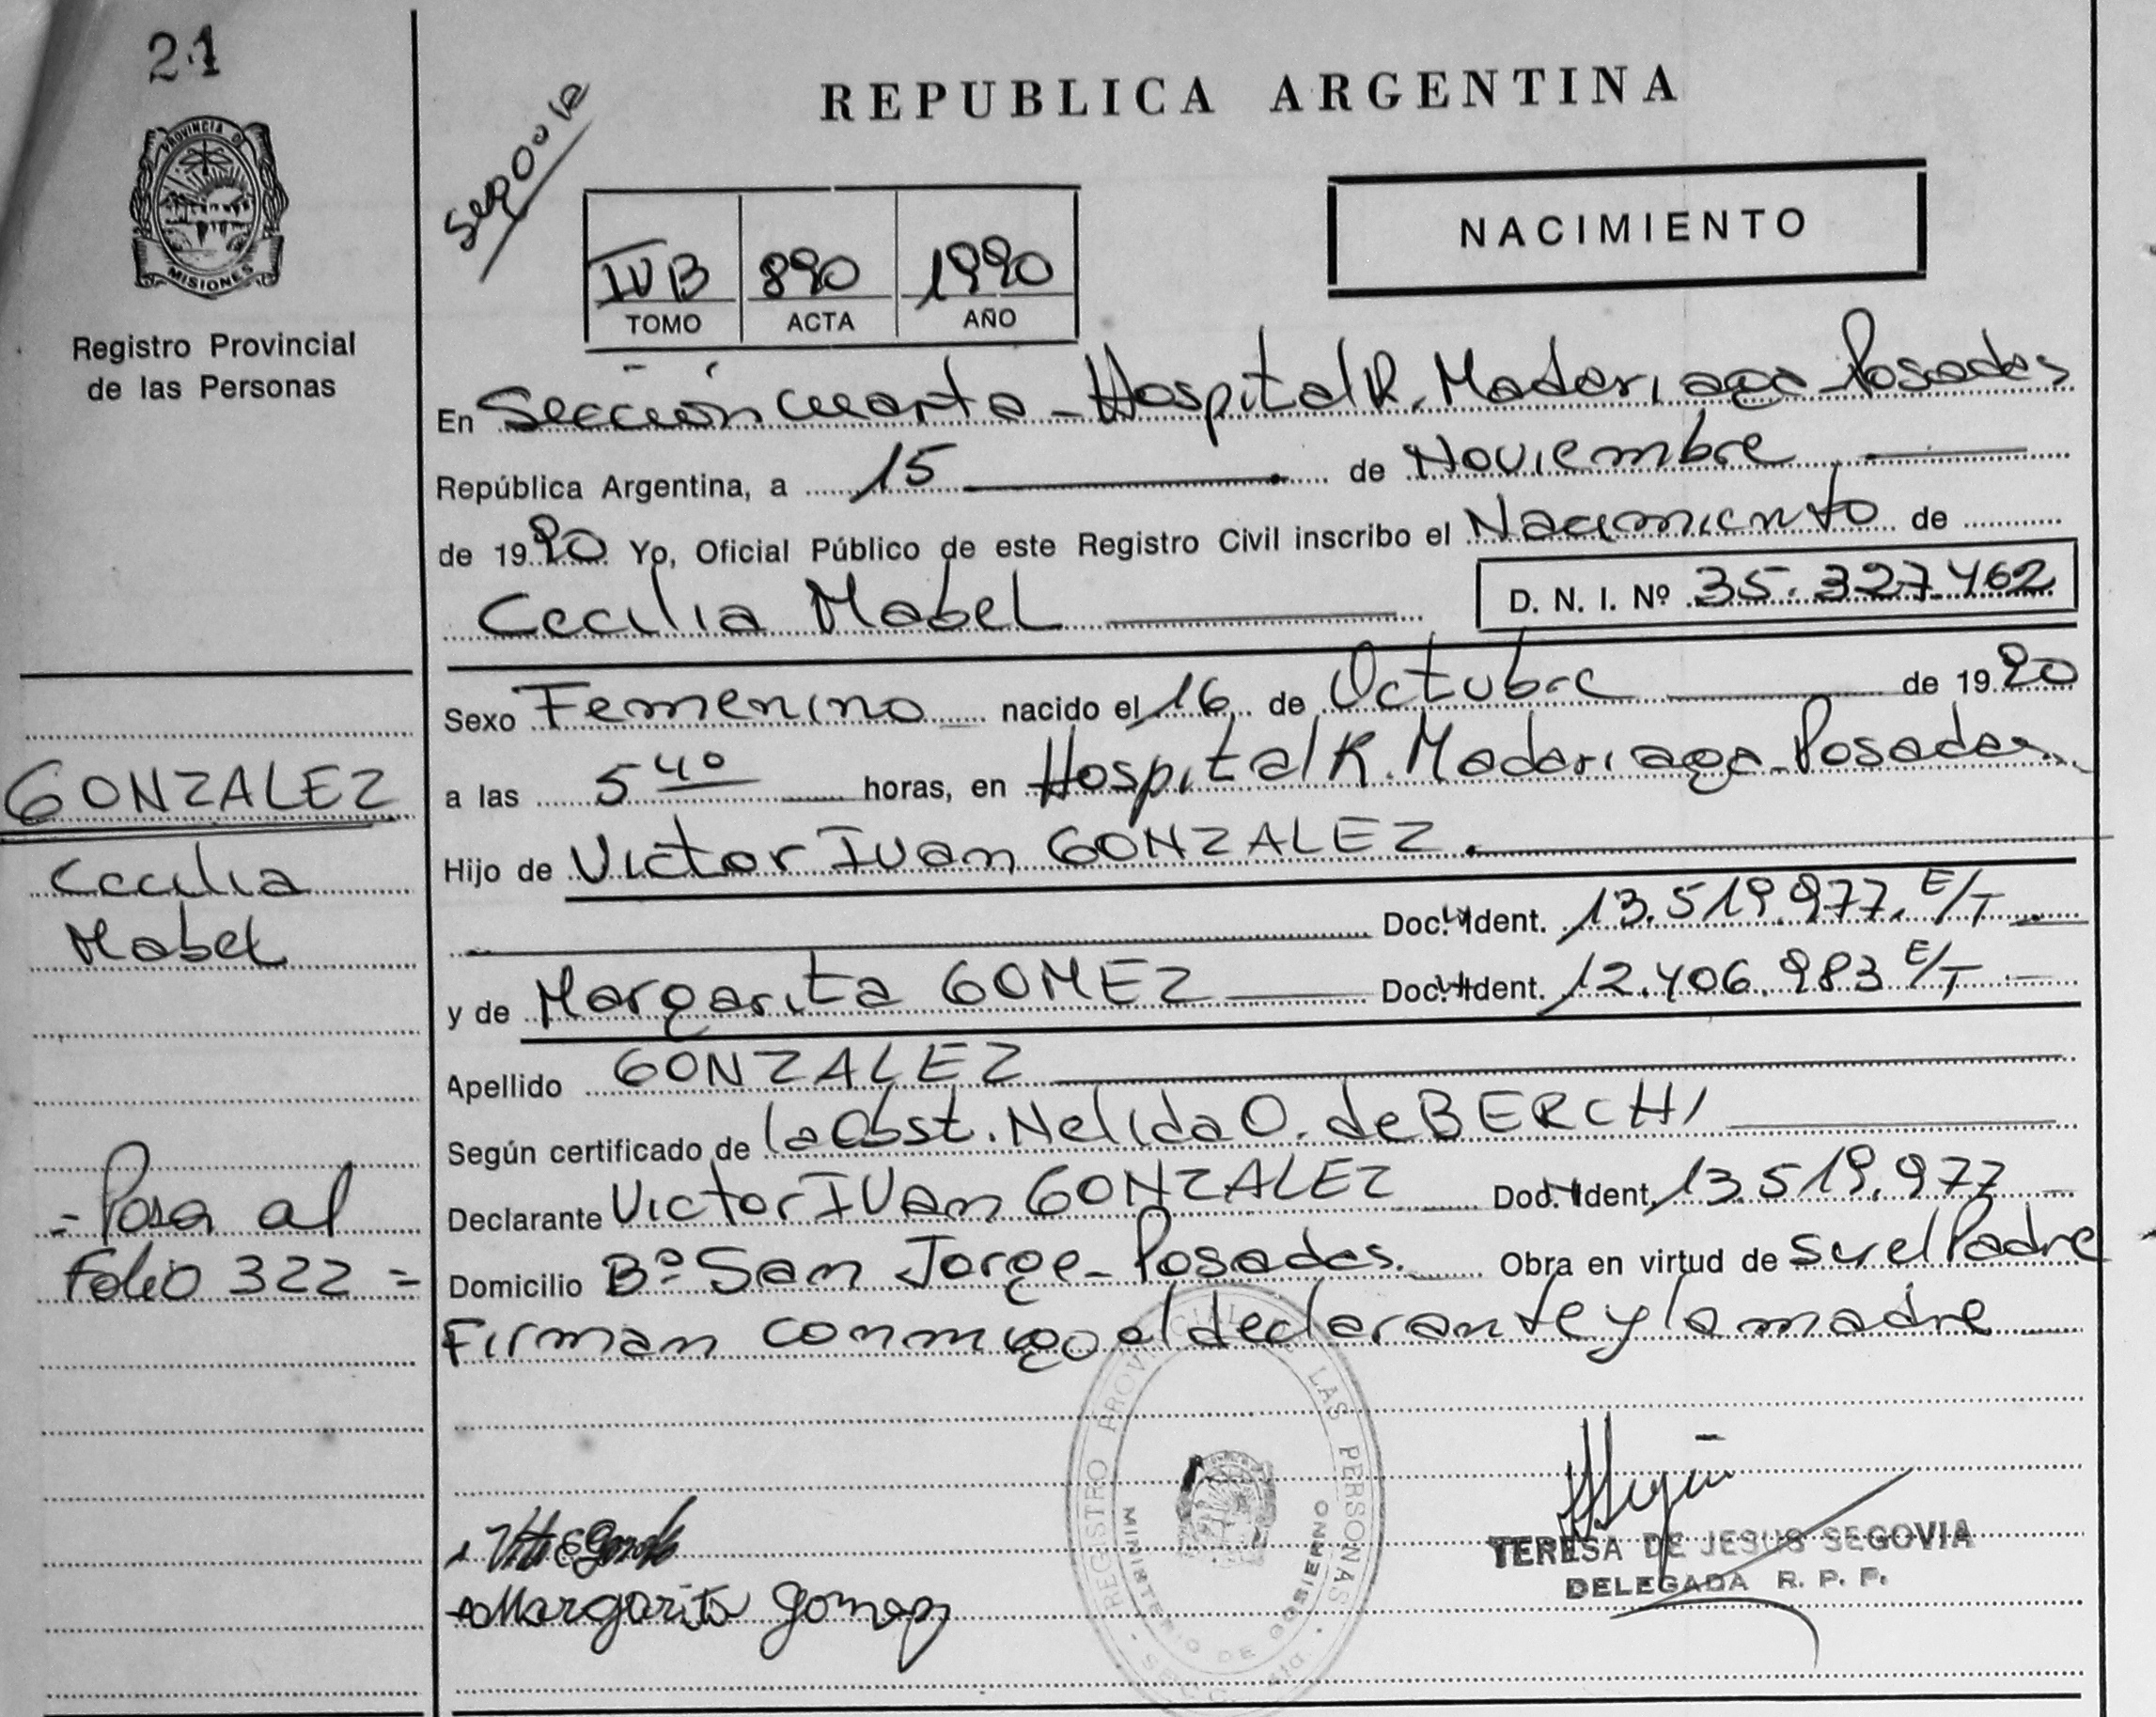 21
PROVINCIA D
MISIONES
Registro Provincial
de las Personas
GONZALEZ
Cecilia
Mabel
= Pasa al
Folio 322 =
REPUBLICA ARGENTINA
NACIMIENTO
IVB 890 1990
TOMO ACTA AÑO
En Sección cuarta - Hospital R. Madariaga - Posadas
República Argentina, a 15 de Noviembre
de 1990 Yo, Oficial Público de este Registro Civil inscribo el Nacimiento de
Cecilia Mabel D. N. I. Nº 35.327.462
Sexo Femenino nacido el 16 de Octubre de 1990
a las 5 40 horas, en Hospital R. Madariaga - Posadas.
Hijo de Victor Ivan GONZALEZ.
Doc. Ident. 13.519.977. E/T
y de Margarita GOMEZ Doc. Ident. 12.406.983 E/T
Apellido GONZALEZ
Según certificado de la Obst. Nelida O. de BERCHI
Declarante Victor Ivan GONZALEZ Doc. Ident. 13.519.977
Domicilio Bº San Jorge - Posadas. Obra en virtud de ser el Padre
Firman conmigo el declarante y la madre
REGISTRO PROVINCIAL DE LAS PERSONAS
MINISTERIO DE GOBIERNO
Margarita Gomez
TERESA DE JESUS SEGOVIA
DELEGADA R. P. P.